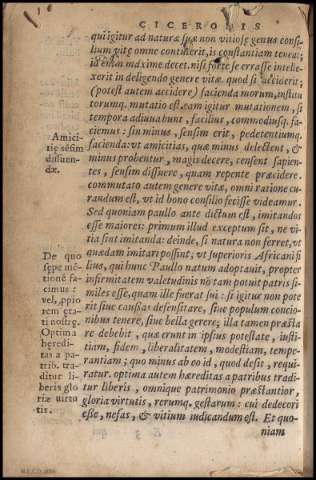 CICERONIS
qui igitur ad naturæ suæ non vitiosæ genus consi-
lium vitę omne contulerit, is constantiam teneat:
id enim maxime decet. nisi forte se errasse intelle-
xerit in deligendo genere vitæ. quod si acciderit;
(potest autem accidere) facienda morum, institu
torumq. mutatio est. eam igitur mutationem, si
tempora adiuuabunt, facilius, commodiusq. fa-
ciemus: sin minus, sensim erit, pedetentimq.
facienda: ut amicitias, quæ minus delectent, &
minus probentur, magis decere, censent sapien-
tes, sensim dissuere, quam repente præcidere.
commutato autem genere vitæ, omni ratione cu-
randum est, ut id bono consilio fecisse videamur.
Sed quoniam paullo ante dictum est, imitandos
esse maiores: primum illud exceptum sit, ne vi
tia sint imitanda: deinde, si natura non ferret, vt
quædam imitari possint, vt superioris Africani fi
lius, qui hunc Paullo natum adoptauit, propter
infirmitatem valetudinis nõ tam potuit patris si
miles esse, quam ille fuerat sui: si igitur non pote
rit siue caussas defensitare, siue populum concio-
nibus tenere, siue bella gerere; illa tamen præsta
re debebit, quæ erunt in ipsius potestate, iusti-
tiam, fidem, liberalitatem, modestiam, tempe-
rantiam; quo minus ab eo id, quod desit, requi-
ratur. optima autem hæreditas a patribus tradi-
tur liberis, omnique patrimonio præstantior,
gloria virtutis, rerumq. gestarum: cui dedecori
esse, nefas, & vitium iudicandum est. Et quo-
niam
Amici-
tię sẽsim
dissuen-
dæ.
De quo
sępe mẽ-
tionẽ fa-
cimus:
vel, ꝓpio
rem ęta-
ti nostrę.
Optima
heredi-
tas a pa-
trib. tra-
ditur li-
beris glo
riæ virtu
tis.